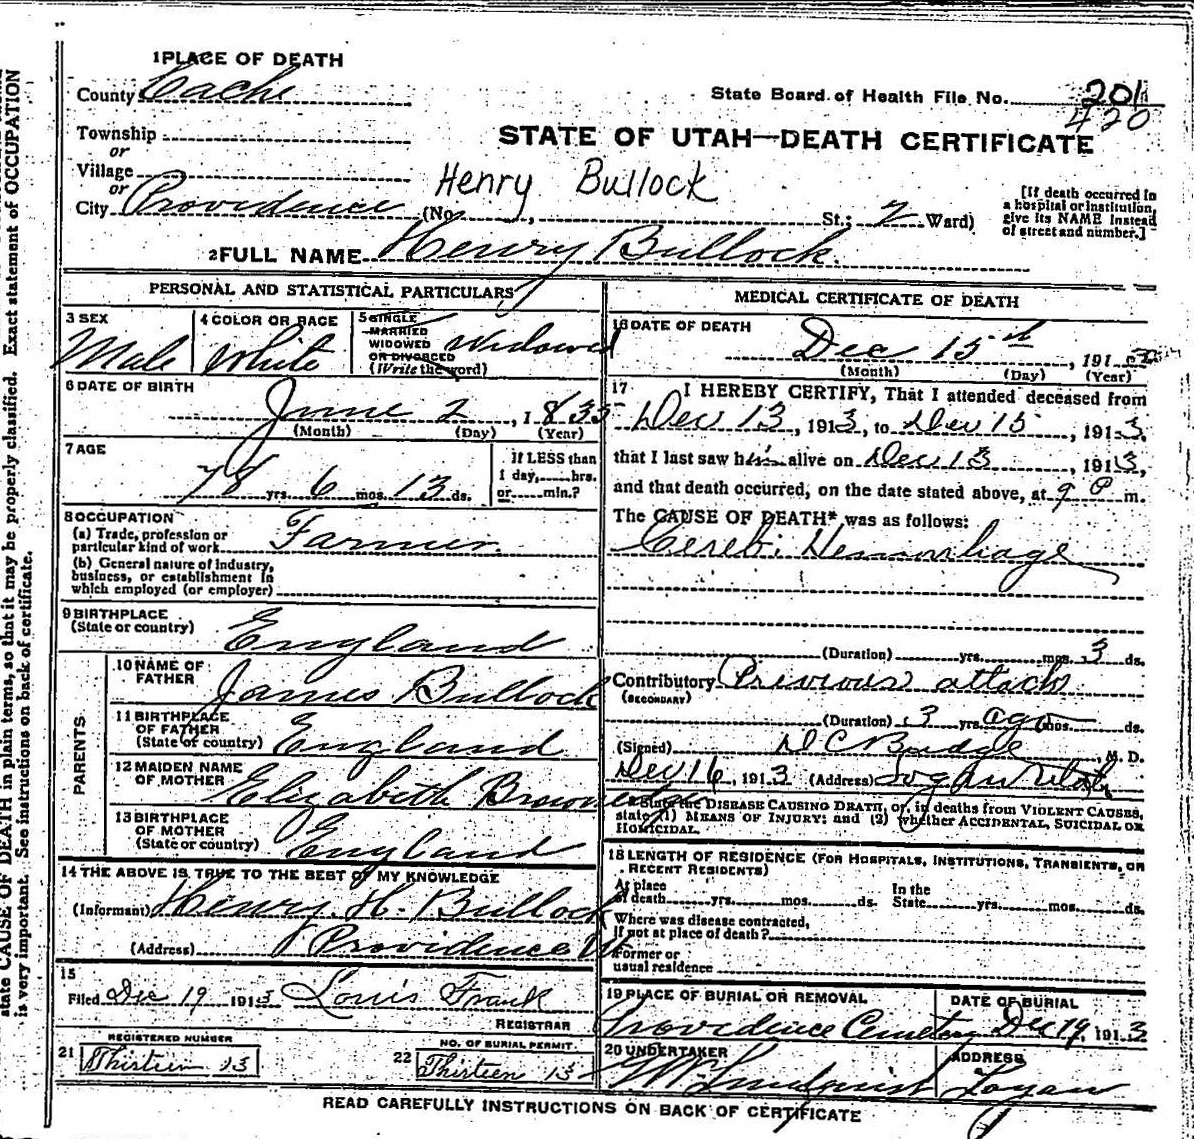 1 PLACE OF DEATH
County Cache
State Board of Health File No. 201
420
Township
or
Village
or
City Providence (No. , St.; 2 Ward)
STATE OF UTAH—DEATH CERTIFICATE
Henry Bullock
[If death occurred in
a hospital or institution,
give its NAME instead
of street and number.]
2 FULL NAME Henry Bullock.
PERSONAL AND STATISTICAL PARTICULARS
3 SEX
Male
4 COLOR OR RACE
White
5 SINGLE
MARRIED
WIDOWED
OR DIVORCED
(Write the word)
Widowed
6 DATE OF BIRTH
June 2, 1835
(Month) (Day) (Year)
7 AGE
78 yrs. 6 mos. 13 ds.
If LESS than
1 day, hrs.
or min.?
8 OCCUPATION
(a) Trade, profession or
particular kind of work Farmer.
(b) General nature of industry,
business, or establishment in
which employed (or employer)
9 BIRTHPLACE
(State or country) England
PARENTS
10 NAME OF
FATHER James Bullock
11 BIRTHPLACE
OF FATHER
(State or country) England
12 MAIDEN NAME
OF MOTHER Elizabeth Brown
13 BIRTHPLACE
OF MOTHER
(State or country) England
14 THE ABOVE IS TRUE TO THE BEST OF MY KNOWLEDGE
(Informant) Henry H. Bullock
(Address) Providence Ut
15
Filed Dec 19 1913 Louis Frank
REGISTRAR
REGISTERED NUMBER
21 Thirteen 13
NO. OF BURIAL PERMIT
22 Thirteen 13
MEDICAL CERTIFICATE OF DEATH
16 DATE OF DEATH
Dec 15th, 191
(Month) (Day) (Year)
17 I HEREBY CERTIFY, That I attended deceased from
Dec 13, 1913, to Dec 15, 1913.
that I last saw him alive on Dec 13, 1913,
and that death occurred, on the date stated above, at 9 P m.
The CAUSE OF DEATH* was as follows:
Cereb. Hemorrhage
(Duration) yrs. mos. 3 ds.
Contributory Previous attack
(SECONDARY)
(Duration) 3 yrs. ago mos. ds.
(Signed) D C Budge, M. D.
Dec 16, 1913 (Address) Logan Utah
*State the DISEASE CAUSING DEATH, or, in deaths from VIOLENT CAUSES,
state (1) MEANS OF INJURY; and (2) whether ACCIDENTAL, SUICIDAL OR
HOMICIDAL.
18 LENGTH OF RESIDENCE (FOR HOSPITALS, INSTITUTIONS, TRANSIENTS, OR
RECENT RESIDENTS)
At place
of death yrs. mos. ds.
In the
State yrs. mos. ds.
Where was disease contracted,
if not at place of death?
Former or
usual residence
19 PLACE OF BURIAL OR REMOVAL
Providence Cemetery
DATE OF BURIAL
Dec 19, 1913
20 UNDERTAKER
Lundquist
ADDRESS
Logan
READ CAREFULLY INSTRUCTIONS ON BACK OF CERTIFICATE
state CAUSE OF DEATH in plain terms, so that it may be properly classified. Exact statement of OCCUPATION
is very important. See instructions on back of certificate.